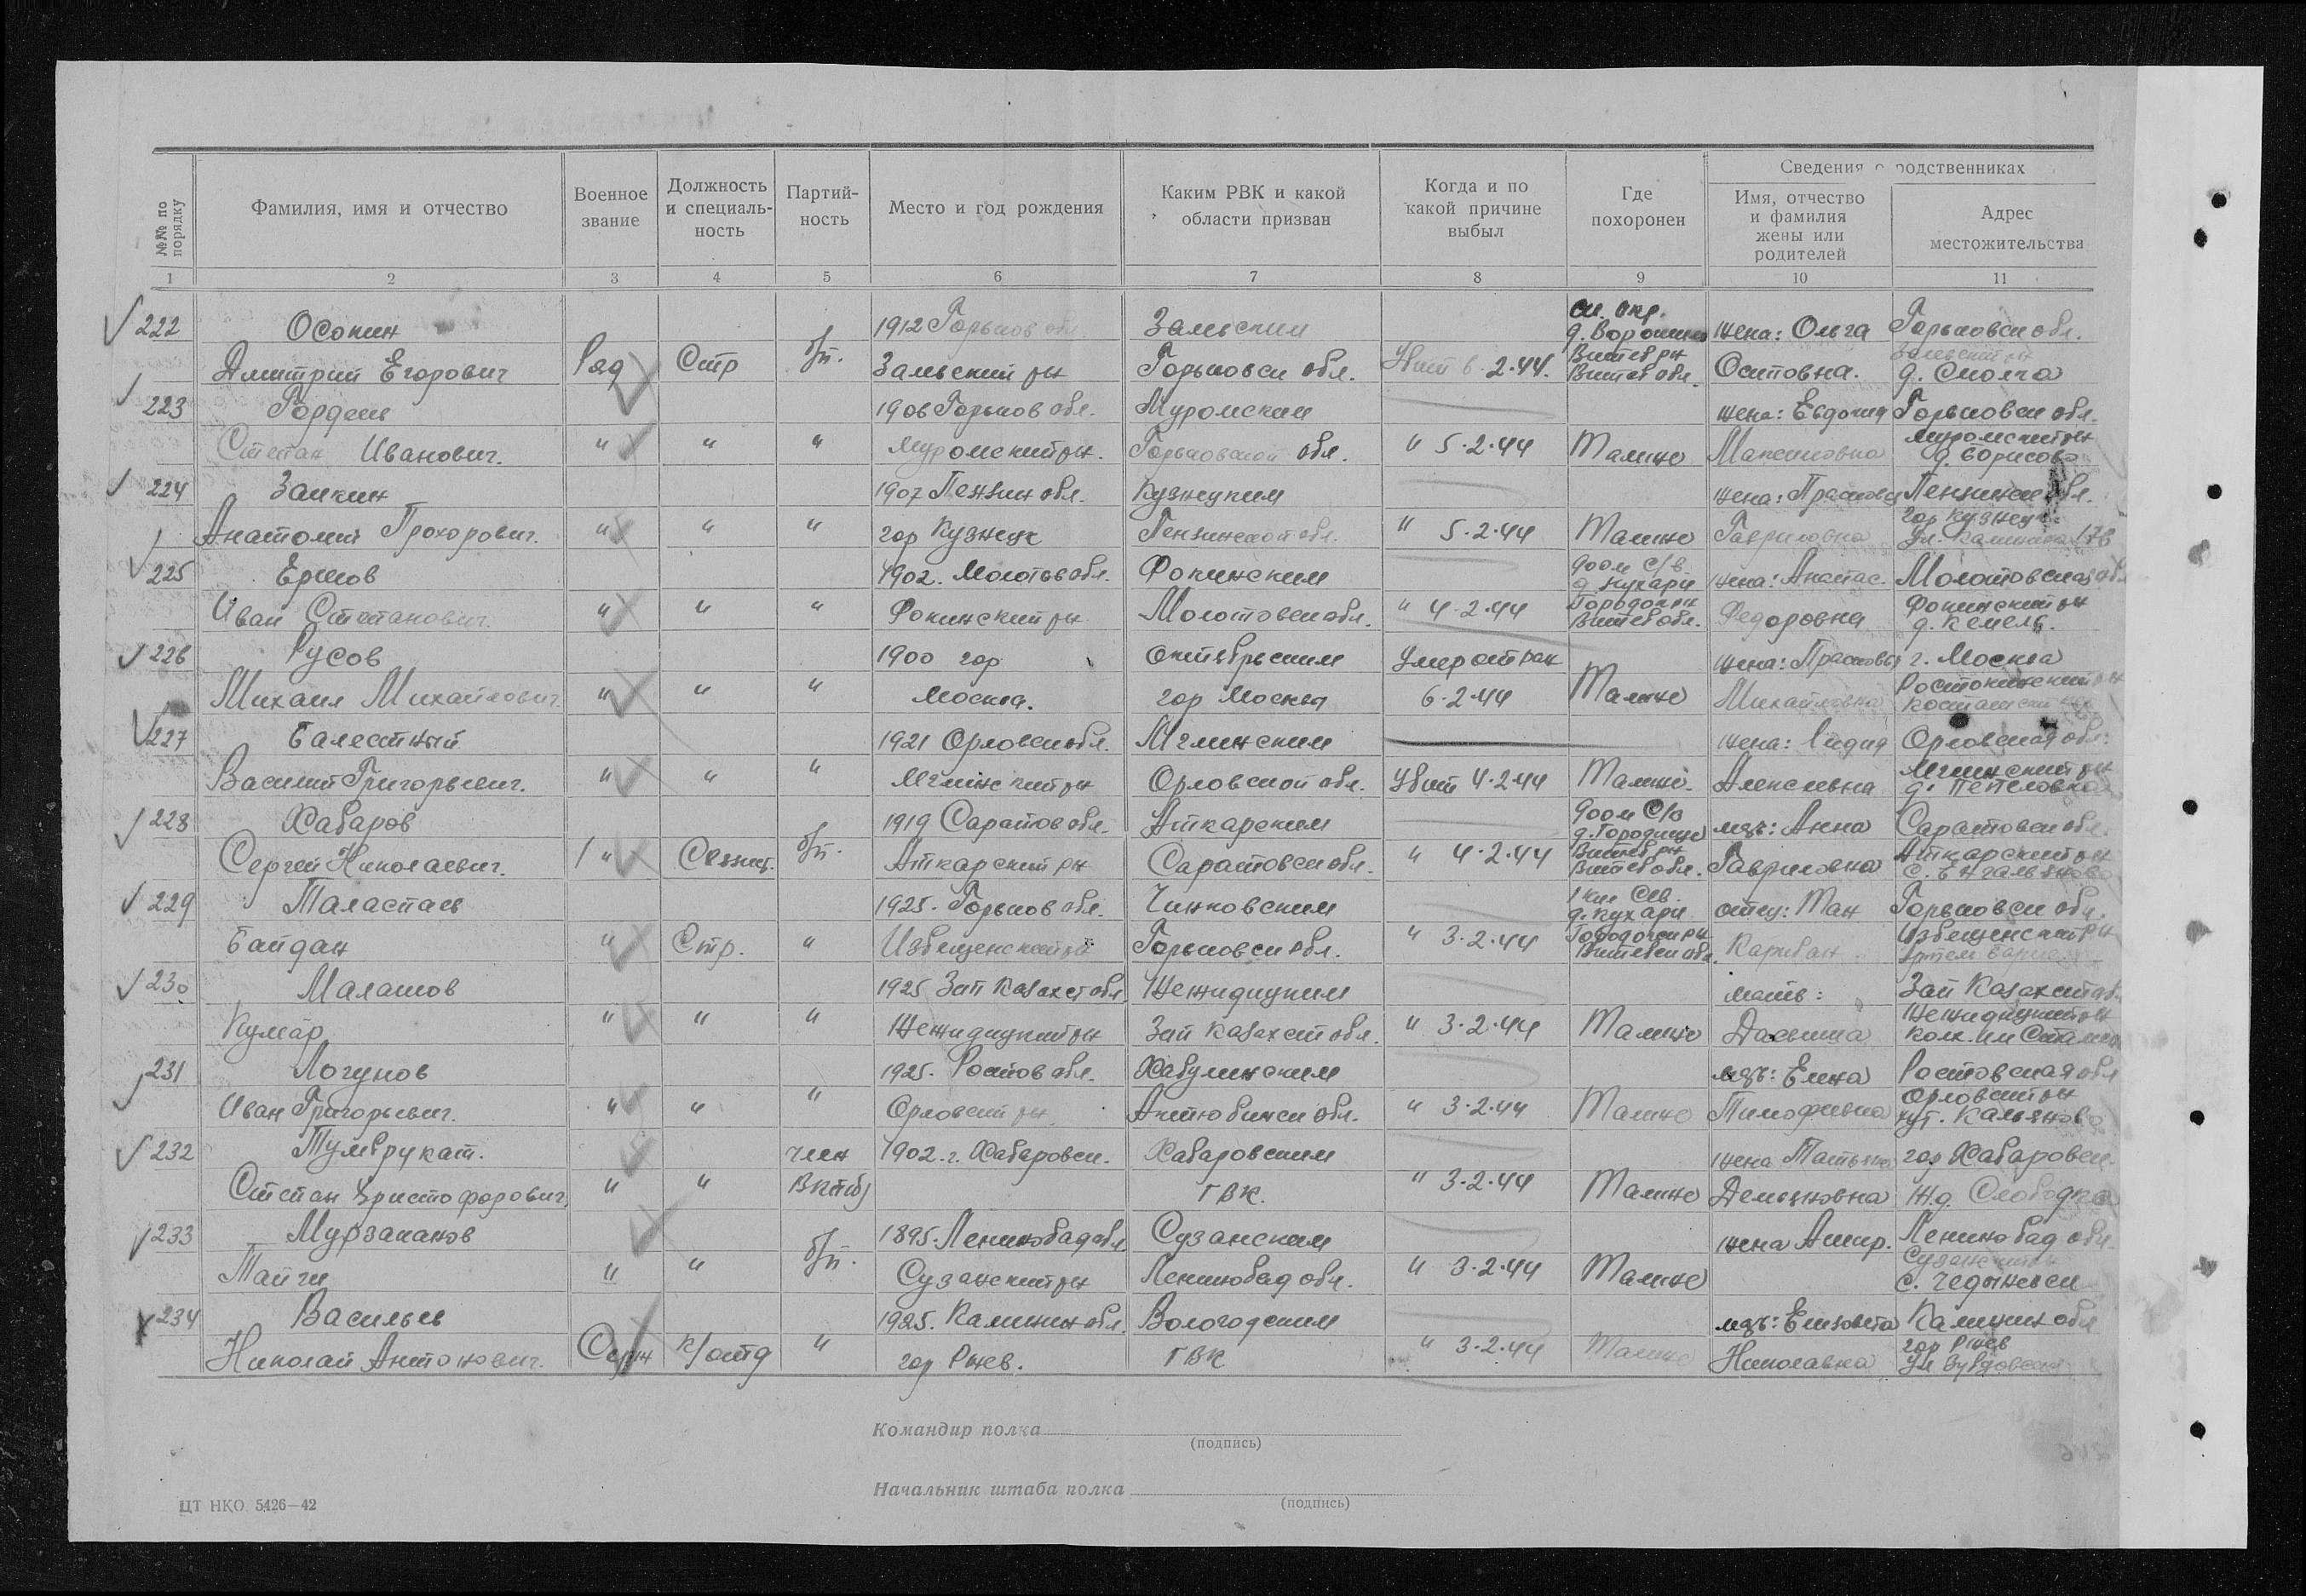 №№ по порядку
Фамилия, имя и отчество
Военное звание
Должность и специальность
Партийность
Место и год рождения
Каким РВК и какой области призван
Когда и по какой причине выбыл
Где похоронен
Сведения о родственниках
Имя, отчество и фамилия жены или родителей
Адрес местожительства
1 2 3 4 5 6 7 8 9 10 11
222 Осокин 1912 Горьков обл Зальским д. Ворошино жена: Ольга Горьковск обл.
Дмитрий Егорович Ряд Стр б/п. Зальский рн Горьковск обл. Убит 6.2.44. Витеб рн Витеб обл. Осиповна. д. Смолча
223 Гордеев 1906 Горьков обл. Муромским жена: Евдокия Горьковск обл.
Степан Иванович. " " " Муромский рн. Горьковской обл. " 5.2.44 Малино Максимовна Муромский рн д. Борисово
224 Заикин 1907 Пензин обл. Кузнецким жена: Прасковья Пензинск обл.
Анатолий Прохорович. " " " гор Кузнецк Пензинской обл. " 5.2.44 Малино Гавриловна гор Кузнецк ул. Калинина 176
225 Ершов 1902. Молотов обл. Фокинским 900 м С/в. д Кухари жена: Анастас. Молотовская обл
Иван Степанович. " " " Фокинский рн Молотовск обл. " 4.2.44 Городок рн Витеб обл. Федоровна Фокинский рн д. Кемель.
226 Русов 1900 гор Октябрьским Умер от ран жена: Прасковья г. Москва
Михаил Михайлович " " " Москва. гор Москва 6.2.44 Малино Михайловна Ростокинский рн
227 Балестный 1921 Орловск обл. Мглинским жена: Лидия Орловская обл.
Василий Григорьевич. " " " Мглинский рн Орловской обл. Убит 4.2.44 Малино. Алексеевна Мглинский рн д. Пепеловка
228 Хабаров 1919 Саратов обл. Аткарским 900 м С/в д. Городище мать: Анна Саратовск обл.
Сергей Николаевич. " б/п. Аткарский рн Саратовск обл. " 4.2.44 Витеб рн Витеб обл. Гавриловна Аткарский рн
229 Таластаев 1925. Горьков обл. Чинковским 1 км Сев. д. Кухари отец: Ман Горьковск обл.
Байдан " Стр. " Избещенский рн Горьковск обл. " 3.2.44 Городокск рн Витебск обл. Карибан Избещенский рн
230 Малашов 1925 Зап Казахст обл Нежидицким мать: Зап Казахст об.
Кумар " " " Нежидицкий рн Зап Казахст обл. " 3.2.44 Малино Дасьима Нежидицкий рн Колх. им Сталина
231 Логунов 1925. Ростов обл. Хабулинским мать: Елена Ростовская обл
Иван Григорьевич. " " " Орловский рн. Актюбинск обл. " 3.2.44 Малино Тимофеевна Орловский рн хут. Кальяново
232 Тумврукат. член 1902. г. Хабаровск. Хабаровским жена Татьяна гор Хабаровск.
Степан Христофорович, " " ВКП(б) ГВК. " 3.2.44 Малино Демьяновна Ж.д. Слободка
233 Мурзаканов 1895. Ленинобад обл. Сузанским жена Ашир. Ленинобад обл.
Тайчи " " б/п. Сузанский рн Ленинобад обл. " 3.2.44 Малино Сузанский рн с. Чедыневск
234 Васильев 1925. Калинин обл. Вологодским мать: Елизовета Калинин обл
Николай Антонович. Серж к/отд " гор Ржев. ГВК " 3.2.44 Малино Николавна гор Ржев
Командир полка
(подпись)
Начальник штаба полка
(подпись)
ЦТ НКО. 5426—42